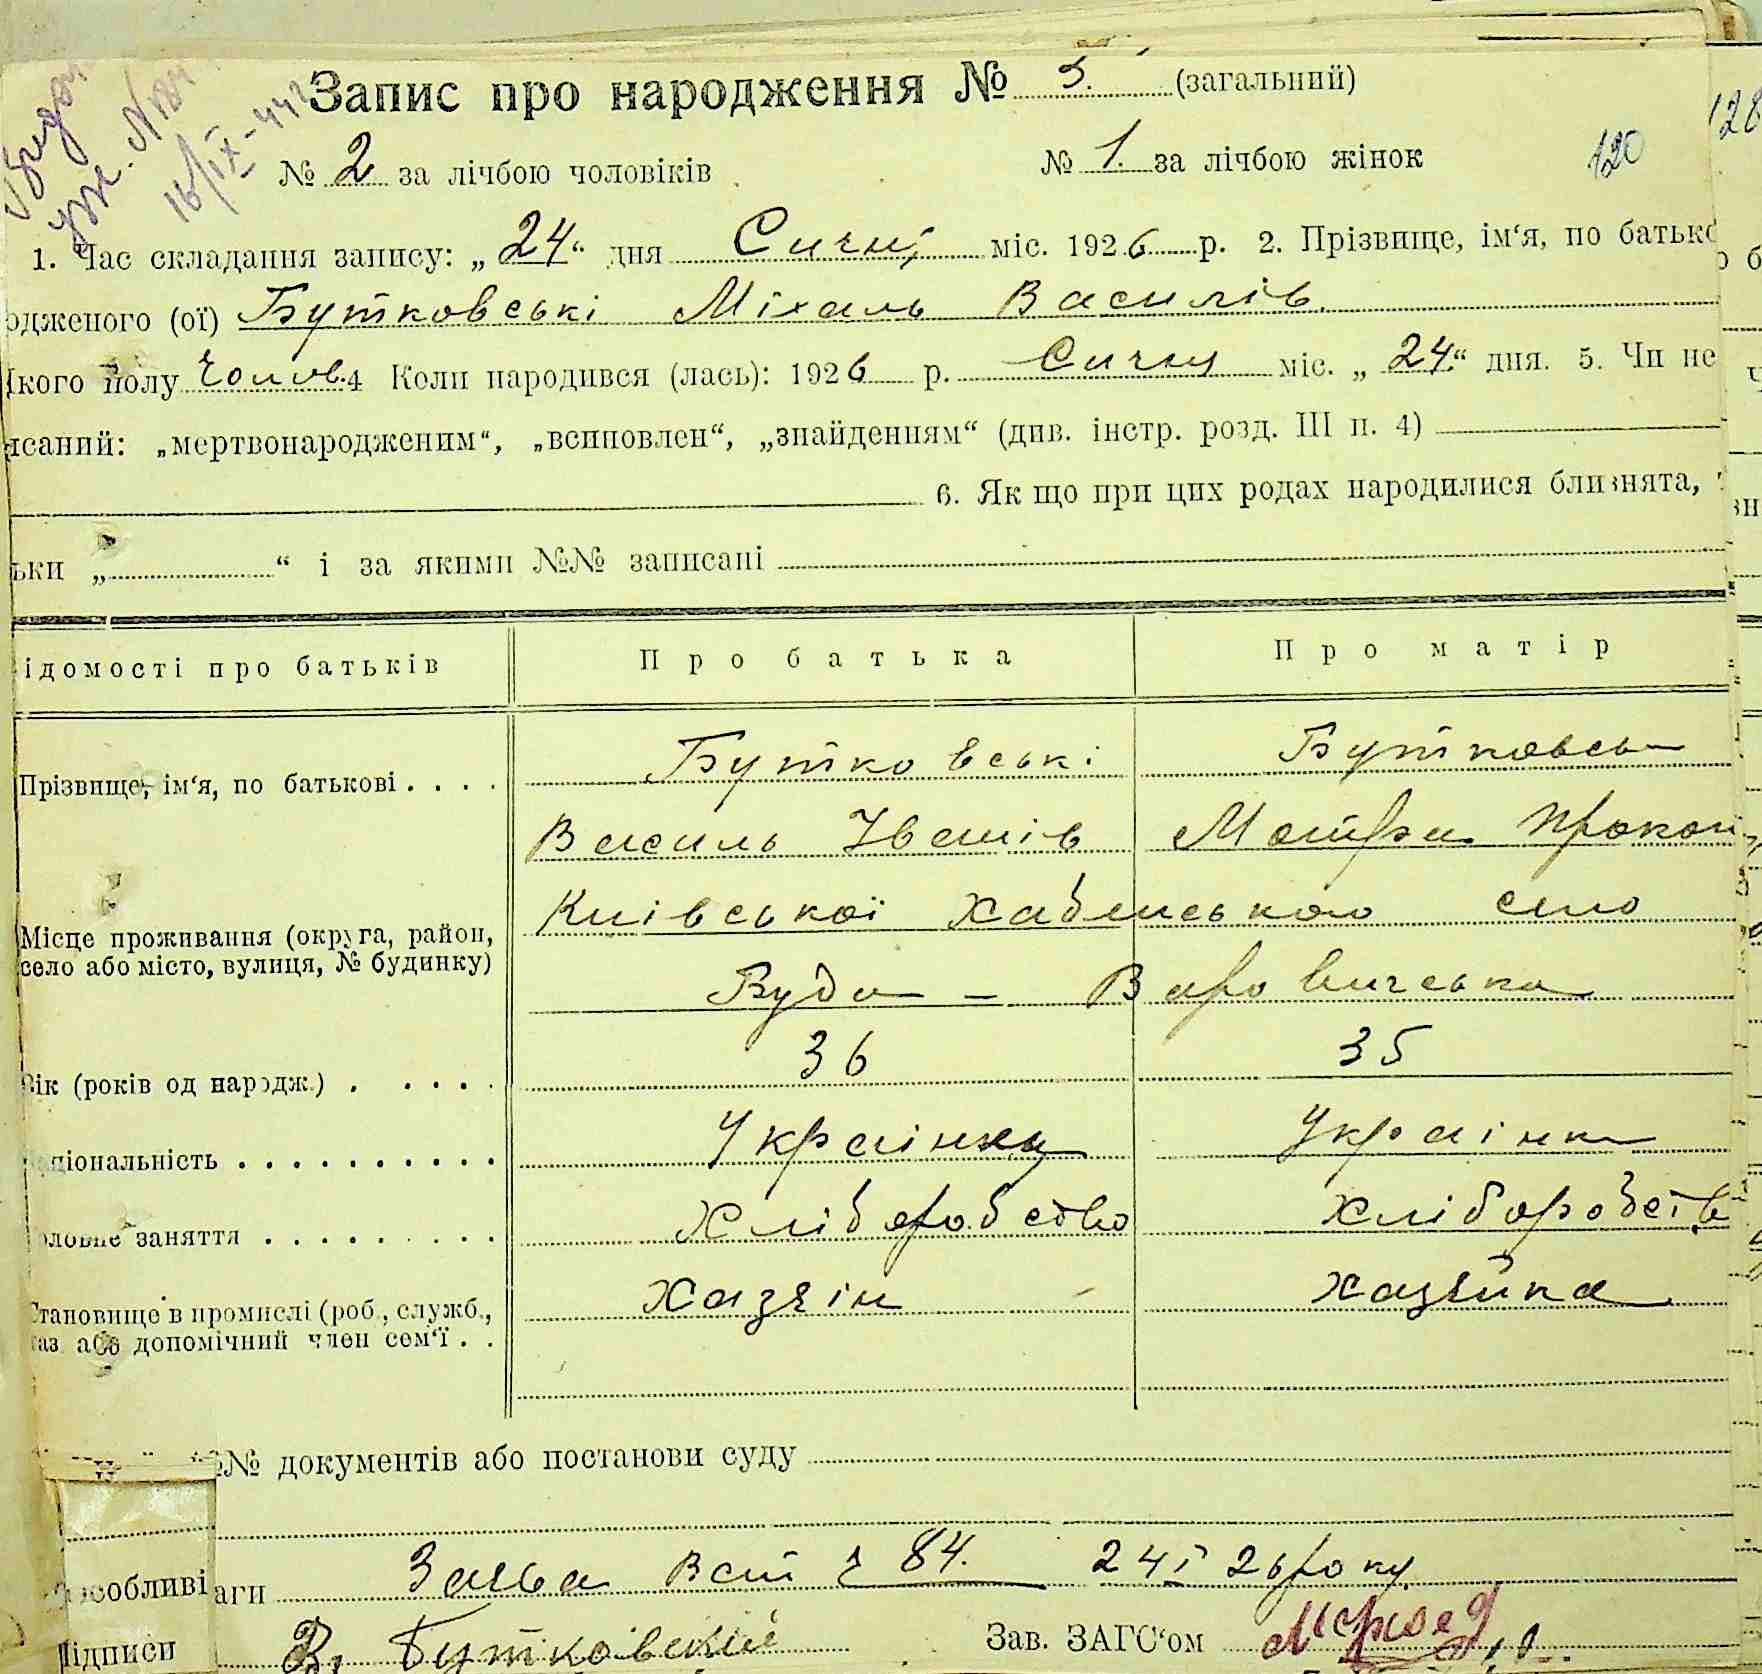 Запис про народження № 5. (загальний)
128
№ 2 за лічбою чоловіків № 1. за лічбою жінок 120
16/IX-44
1. Час складання запису: „24“ дня Січня міс. 1926 р. 2. Прізвище, ім‘я, по батько
одженого (ої) Бутковські Міхаль Василів.
якого полу Чолов. 4 Коли народився (лась): 1926 р. Сичня міс. „24“ дня. 5. Чи не
исаний: „мертвонародженим“, „всиповлен“, „знайденням“ (див. інстр. розд. III п. 4)
6. Як що при цих родах народилися близнята,
ьки „ “ і за якими №№ записані
ідомості про батьків Про батька Про матір
Прізвище, ім‘я, по батькові . . . . Бутковські Бутковсь
Василь Іванів Мотря Прокоп
Місце проживання (округа, район, село або місто, вулиця, № будинку) Київської Хабенського село
Буда - Варовичська
Вік (років од народж.) . . . . . 36 35
Національність . . . . . . . . . . Українец Українка
оловне заняття . . . . . . . . . Хліборобство Хліборобств
Становище в промислі (роб., служб., Хазяін Хазяйка
аз. або допомічний член сем‘ї . .
№№ документів або постанови суду
особливі аги Заява Вст 84. 24 I 26 року
Підписи В. Бутковский Зав. ЗАГС‘ом